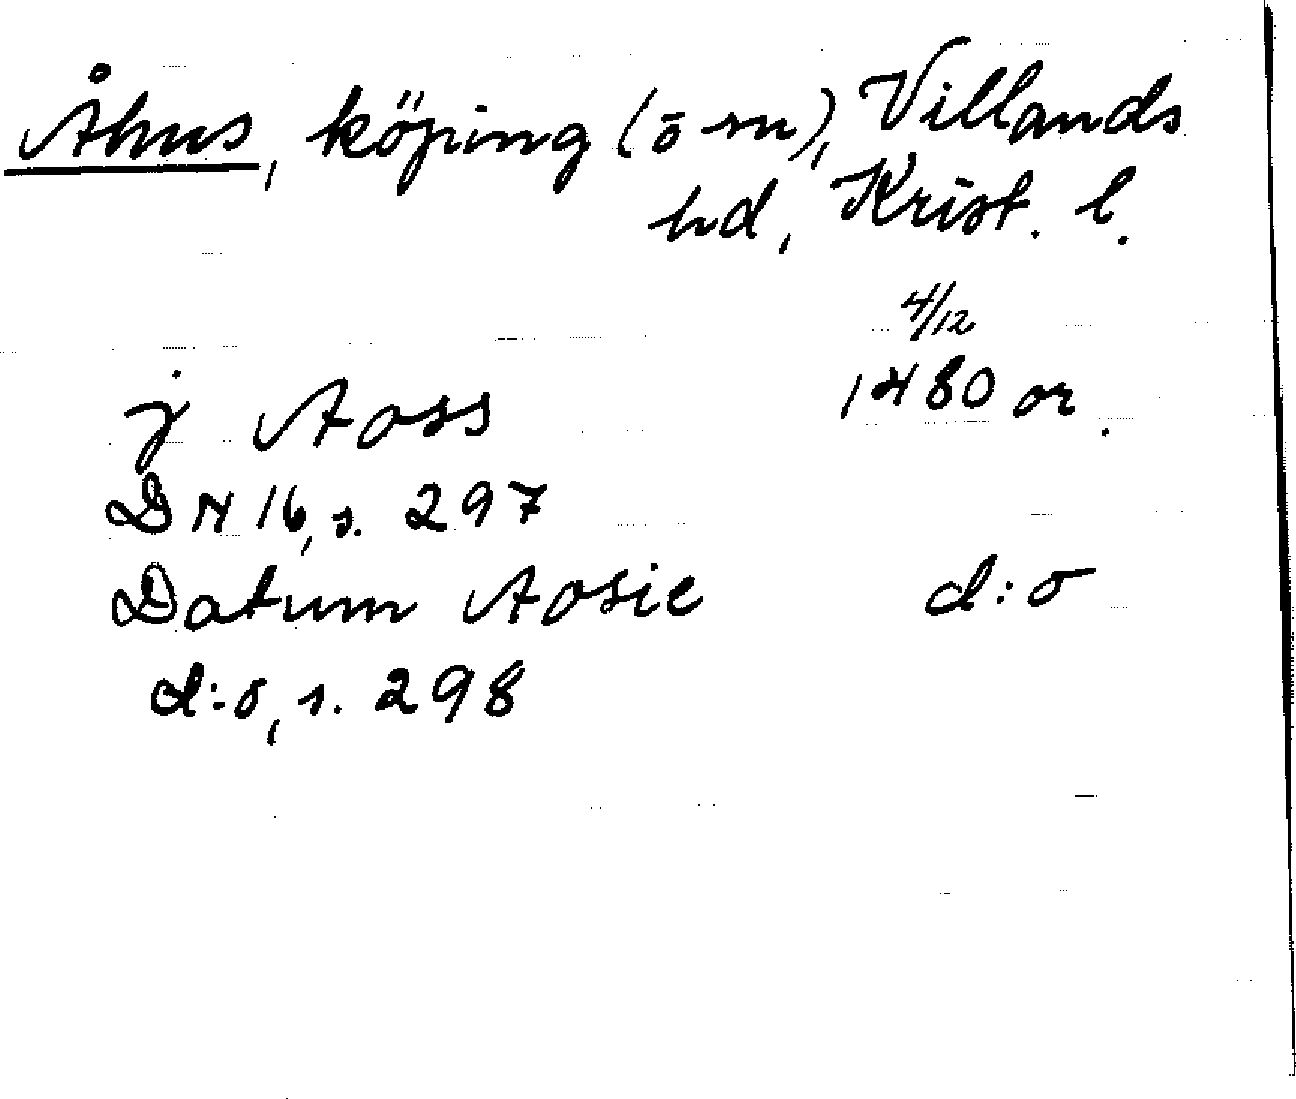 Åhus, köping (ö sn), Villands
hd, Krist. l.
4/12
j Aoss 1480 or.
DN 16, s. 297
Datum Aosie d:o
d:o, s. 298